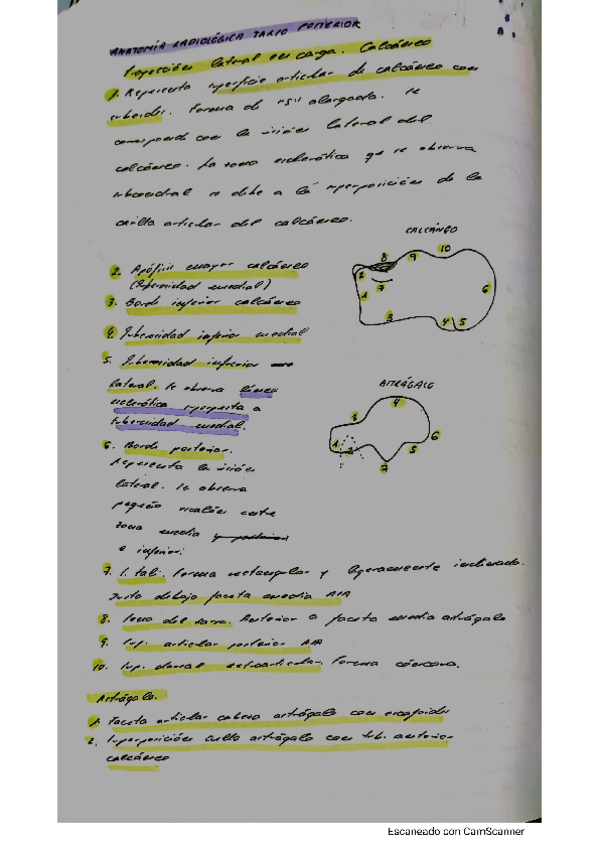 ANATOMÍA RADIOLÓGICA TARSO POSTERIOR
Proyección lateral en carga. Calcáneo
1. Representa superficie articular de calcáneo con
cuboides. Forma de "S" alargada. Se
corresponde con la visión lateral del
calcáneo. La zona esclerótica que se observa
subcondral se debe a la superposición de la
carilla articular del calcáneo.
CALCÁNEO
8 9 10
2
7
1
6
3
4 5
2. Apófisis mayor calcáneo
(Tuberosidad medial)
3. Borde inferior calcáneo
4. Tuberosidad inferior medial
5. Tuberosidad inferior
lateral. Se observa línea
esclerótica superpuesta a
tuberosidad medial.
ASTRÁGALO
4
3
1
2
6
5
7
6. Borde posterior.
Representa la visión
lateral. Se observa
pequeño escalón entre
zona media
e inferior.
7. S. tali. Forma rectangular y ligeramente inclinado.
Justo debajo faceta media
8. Seno del tarso. Anterior a faceta media astrágalo
9. Sup. articular posterior
10. Sup. dorsal retroarticular. Forma cóncava.
Astrágalo.
1. Faceta articular cabeza astrágalo con escafoides
2. Superposición cuello astrágalo con tub. anterior
calcáneo
Escaneado con CamScanner